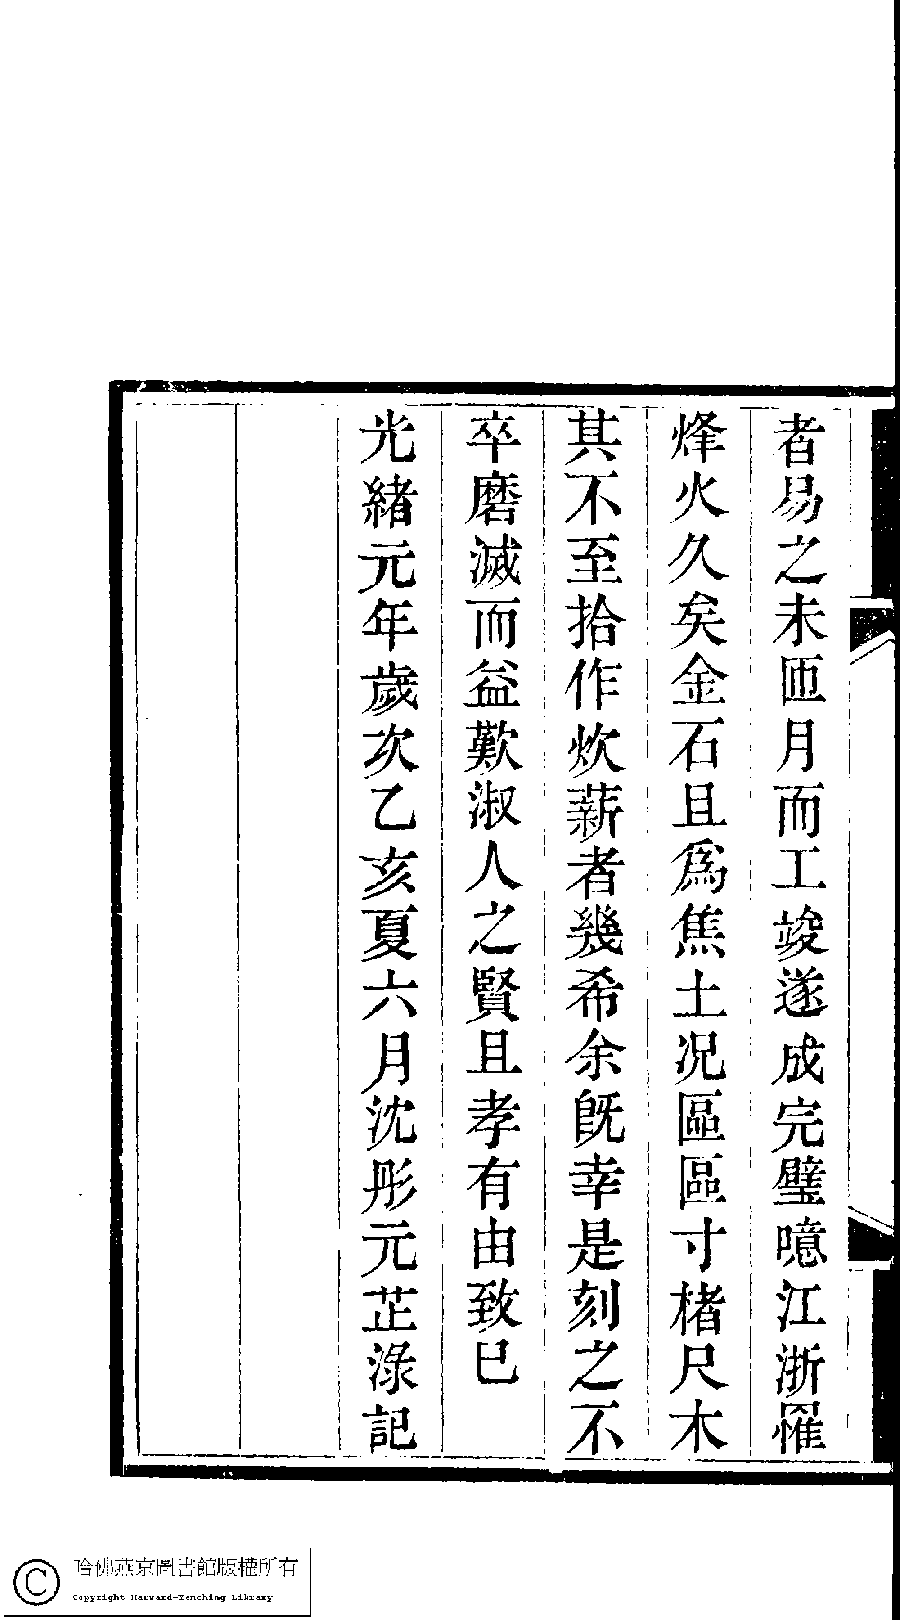 者易之未匝月而工竣遂成完璧噫江浙罹
烽火久矣金石且爲焦土况區區寸楮尺木
其不至拾作炊薪者幾希余旣幸是刻之不
卒磨滅而益歎淑人之賢且孝有由致已
光緒元年歲次乙亥夏六月沈彤元芷淥記
哈佛燕京圖書館版權所有
Copyright Harvard-Yenching Library